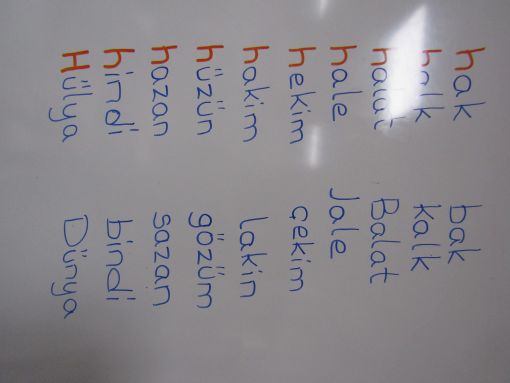 hak bak
halk kalk
halat Balat
hale Jale
hekim çekim
hakim lakin
hüzün gözüm
hazan sazan
hindi bindi
Hülya Dünya